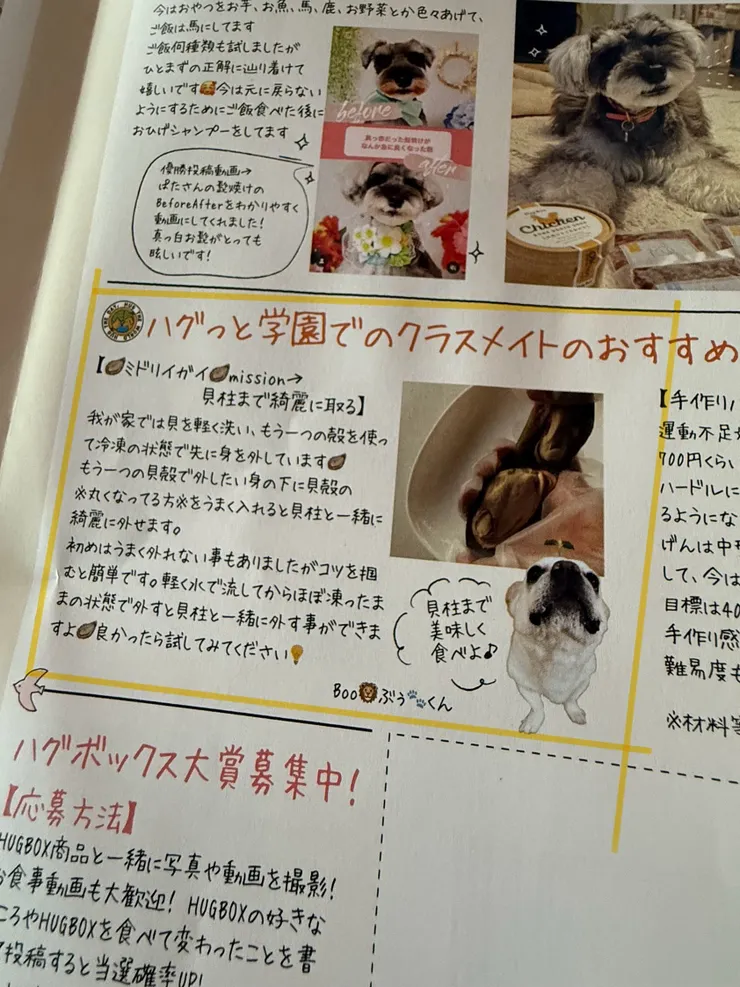 今はおやつをお芋、お魚、馬、鹿、お野菜とか色々あげて、
ご飯は馬にしてます
ご飯何種類も試しましたが
ひとまずの正解に辿り着けて
嬉しいです🥰今は元に戻らない
ようにするためにご飯食べた後に
おひげシャンプーをしてます
優勝投稿動画→
ぽたさんの穀焼けの
BeforeAfterをわかりやすく
動画にしてくれました!
真っ白お髭がとっても
眩しいです!
before
真っ赤だった髭焼けが
なんか急に良くなった話
After
Chicken
ハグっと学園でのクラスメイトのおすすめ
【🦪ミドリイガイ🦪mission→
貝柱まで綺麗に取る】
我が家では貝を軽く洗い、もう一つの殻を使っ
て冷凍の状態で先に身を外しています🦪
もう一つの貝殻で外したい身の下に貝殻の
※丸くなってる方※をうまく入れると貝柱と一緒に
綺麗に外せます。
初めはうまく外れない事もありましたがコツを掴
むと簡単です。軽く水で流してからほぼ凍ったま
まの状態で外すと貝柱と一緒に外す事ができま
すよ🦪良かったら試してみてください💡
貝柱まで
美味しく
食べよ♪
Boo🦁ぶぅ🐾くん
【手作りハ
運動不足
700円くら、
ハードルに
るようにな
げんは中
して、今は
目標は40
手作り感
難易度も
※材料等
ハグボックス大賞募集中!
【応募方法】
HUGBOX商品と一緒に写真や動画を撮影!
お食事動画も大歓迎! HUGBOXの好きな
ころやHUGBOXを食べて変わったことを書
て投稿すると当選確率UP!